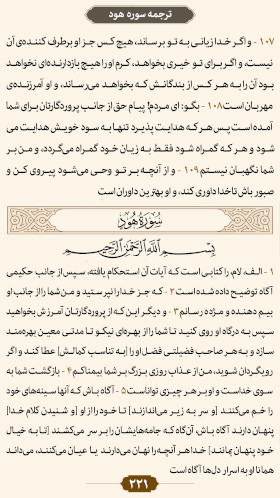 ترجمه سوره هود
۱۰۷ - و اگر خدا زیانی به تو برساند، هیچ کس جز او برطرف کننده‌ی آن
نیست، و اگر برای تو خیری بخواهد، کرم او را هیچ بازدارنده‌ای نخواهد
بود آن را به هر کس از بندگانش که بخواهد می‌رساند، و او آمرزنده‌ی
مهربان است ۱۰۸ - بگو: ای مردم! پیام حق از جانب پروردگارتان برای شما
آمده است پس هر که هدایت پذیرد تنها به سود خویش هدایت می
شود و هر که گمراه شود فقط به زیان خود گمراه می‌گردد، و من بر
شما نگهبان نیستم ۱۰۹ - و از آنچه بر تو وحی می‌شود پیروی کن و
صبور باش تا خدا داوری کند، و او بهترین داوران است
سُورَةُ هُودٍ
بِسْمِ اللَّهِ الرَّحْمَنِ الرَّحِيمِ
۱ - الف، لام، را کتابی است که آیات آن استحکام یافته، سپس از جانب حکیمی
آگاه توضیح داده شده است ۲ - که جز خدا را نپرستید و من شما را از جانب او
بیم دهنده و مژده رسانم ۳ - و دیگر این که از پروردگارتان آمرزش بخواهید
سپس به درگاه او روی کنید تا شما را از بهره‌ای نیکو تا مدتی معین بهره‌مند
سازد و به هر صاحب فضیلتی فضل او را [به تناسب کمالش] عطا کند و اگر
رویگردان شوید، من از عذاب روزی بزرگ بر شما بیمناکم ۴ - بازگشت شما به
سوی خداست و او بر هر چیزی تواناست ۵ - آگاه باش که آنها سینه‌های خود
را خم می‌کنند [و سر به زیر می‌اندازند] تا خود را از او [و شنیدن کلام خدا]
پنهان دارند آگاه باش، آن‌گاه که جامه‌هایشان را بر سر می‌کشند [تا به خیال
خود پنهان بمانند] خدا هر آنچه را نهان می‌دارند یا عیان می‌کنند، می‌داند
همانا او به اسرار دل‌ها آگاه است
۲۲۱